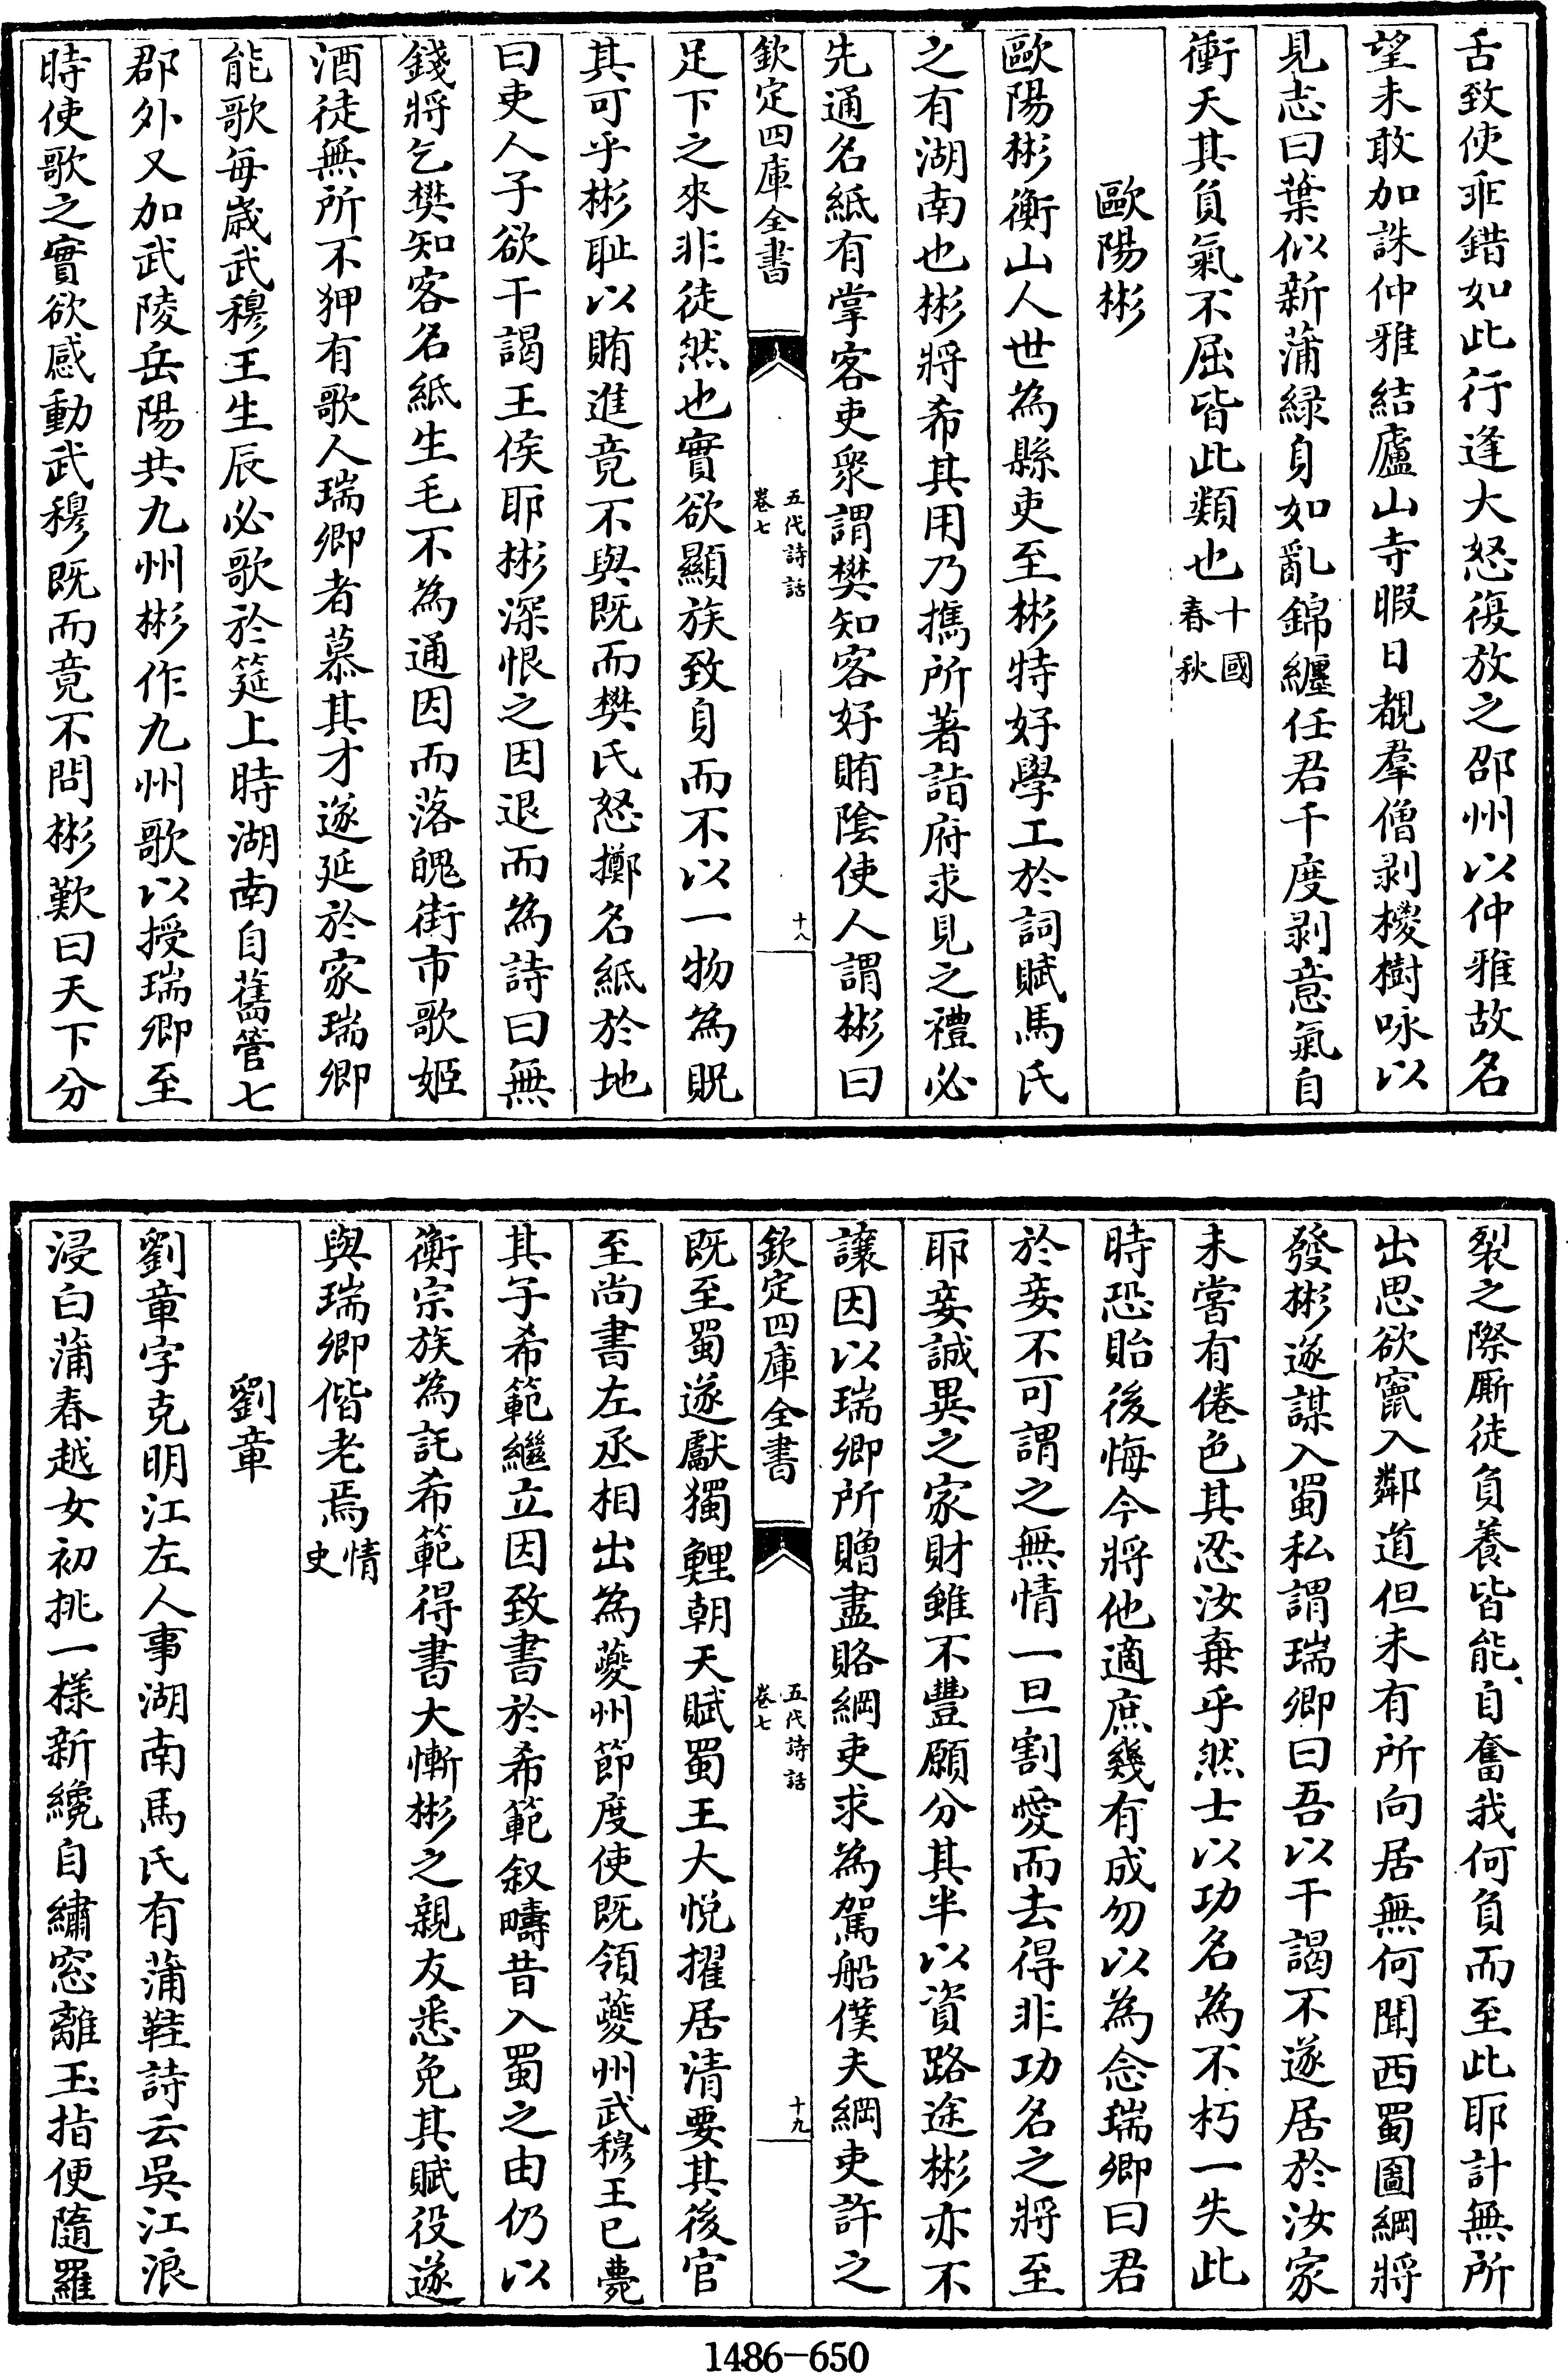 舌致使乖錯如此行逢大怒復放之邵州以仲雅故名
望未敢加誅仲雅結廬山寺暇日覩羣僧剥椶樹咏以
見志曰葉似新蒲緑身如亂錦纏任君千度剥意氣自
衝天其負氣不屈皆此類也十國春秋
歐陽彬
歐陽彬衡山人世為縣吏至彬特好學工於詞賦馬氏
之有湖南也彬將希其用乃攜所著詣府求見之禮必
先通名紙有掌客吏衆謂樊知客好賄陰使人謂彬曰
欽定四庫全書
五代詩話
卷七
十八
足下之來非徒然也實欲顯族致身而不以一物為貺
其可乎彬耻以賄進竟不與既而樊氏怒擲名紙於地
曰吏人子欲干謁王侯耶彬深恨之因退而為詩曰無
錢將乞樊知客名紙生毛不為通因而落魄街市歌姬
酒徒無所不狎有歌人瑞卿者慕其才遂延於家瑞卿
能歌每歲武穆王生辰必歌於筵上時湖南自舊管七
郡外又加武陵岳陽共九州彬作九州歌以授瑞卿至
時使歌之實欲感動武穆既而竟不問彬歎曰天下分
裂之際厮徒負養皆能自奮我何負而至此耶計無所
出思欲竄入鄰道但未有所向居無何聞西蜀圖綱將
發彬遂謀入蜀私謂瑞卿曰吾以干謁不遂居於汝家
未嘗有倦色其忍汝棄乎然士以功名為不朽一失此
時恐貽後悔今將他適庶幾有成勿以為念瑞卿曰君
於妾不可謂之無情一旦割愛而去得非功名之將至
耶妾誠異之家財雖不豐願分其半以資路途彬亦不
讓因以瑞卿所贈盡賂綱吏求為駕船僕夫綱吏許之
欽定四庫全書
五代詩話
卷七
十九
既至蜀遂獻獨鯉朝天賦蜀王大悦擢居清要其後官
至尚書左丞相出為夔州節度使既領夔州武穆王已薨
其子希範繼立因致書於希範叙疇昔入蜀之由仍以
衡宗族為託希範得書大慚彬之親友悉免其賦役遂
與瑞卿偕老焉情史
劉章
劉章字克明江左人事湖南馬氏有蒲鞋詩云吳江浪
浸白蒲春越女初挑一様新纔自繡窓離玉指便隨羅
1486-650